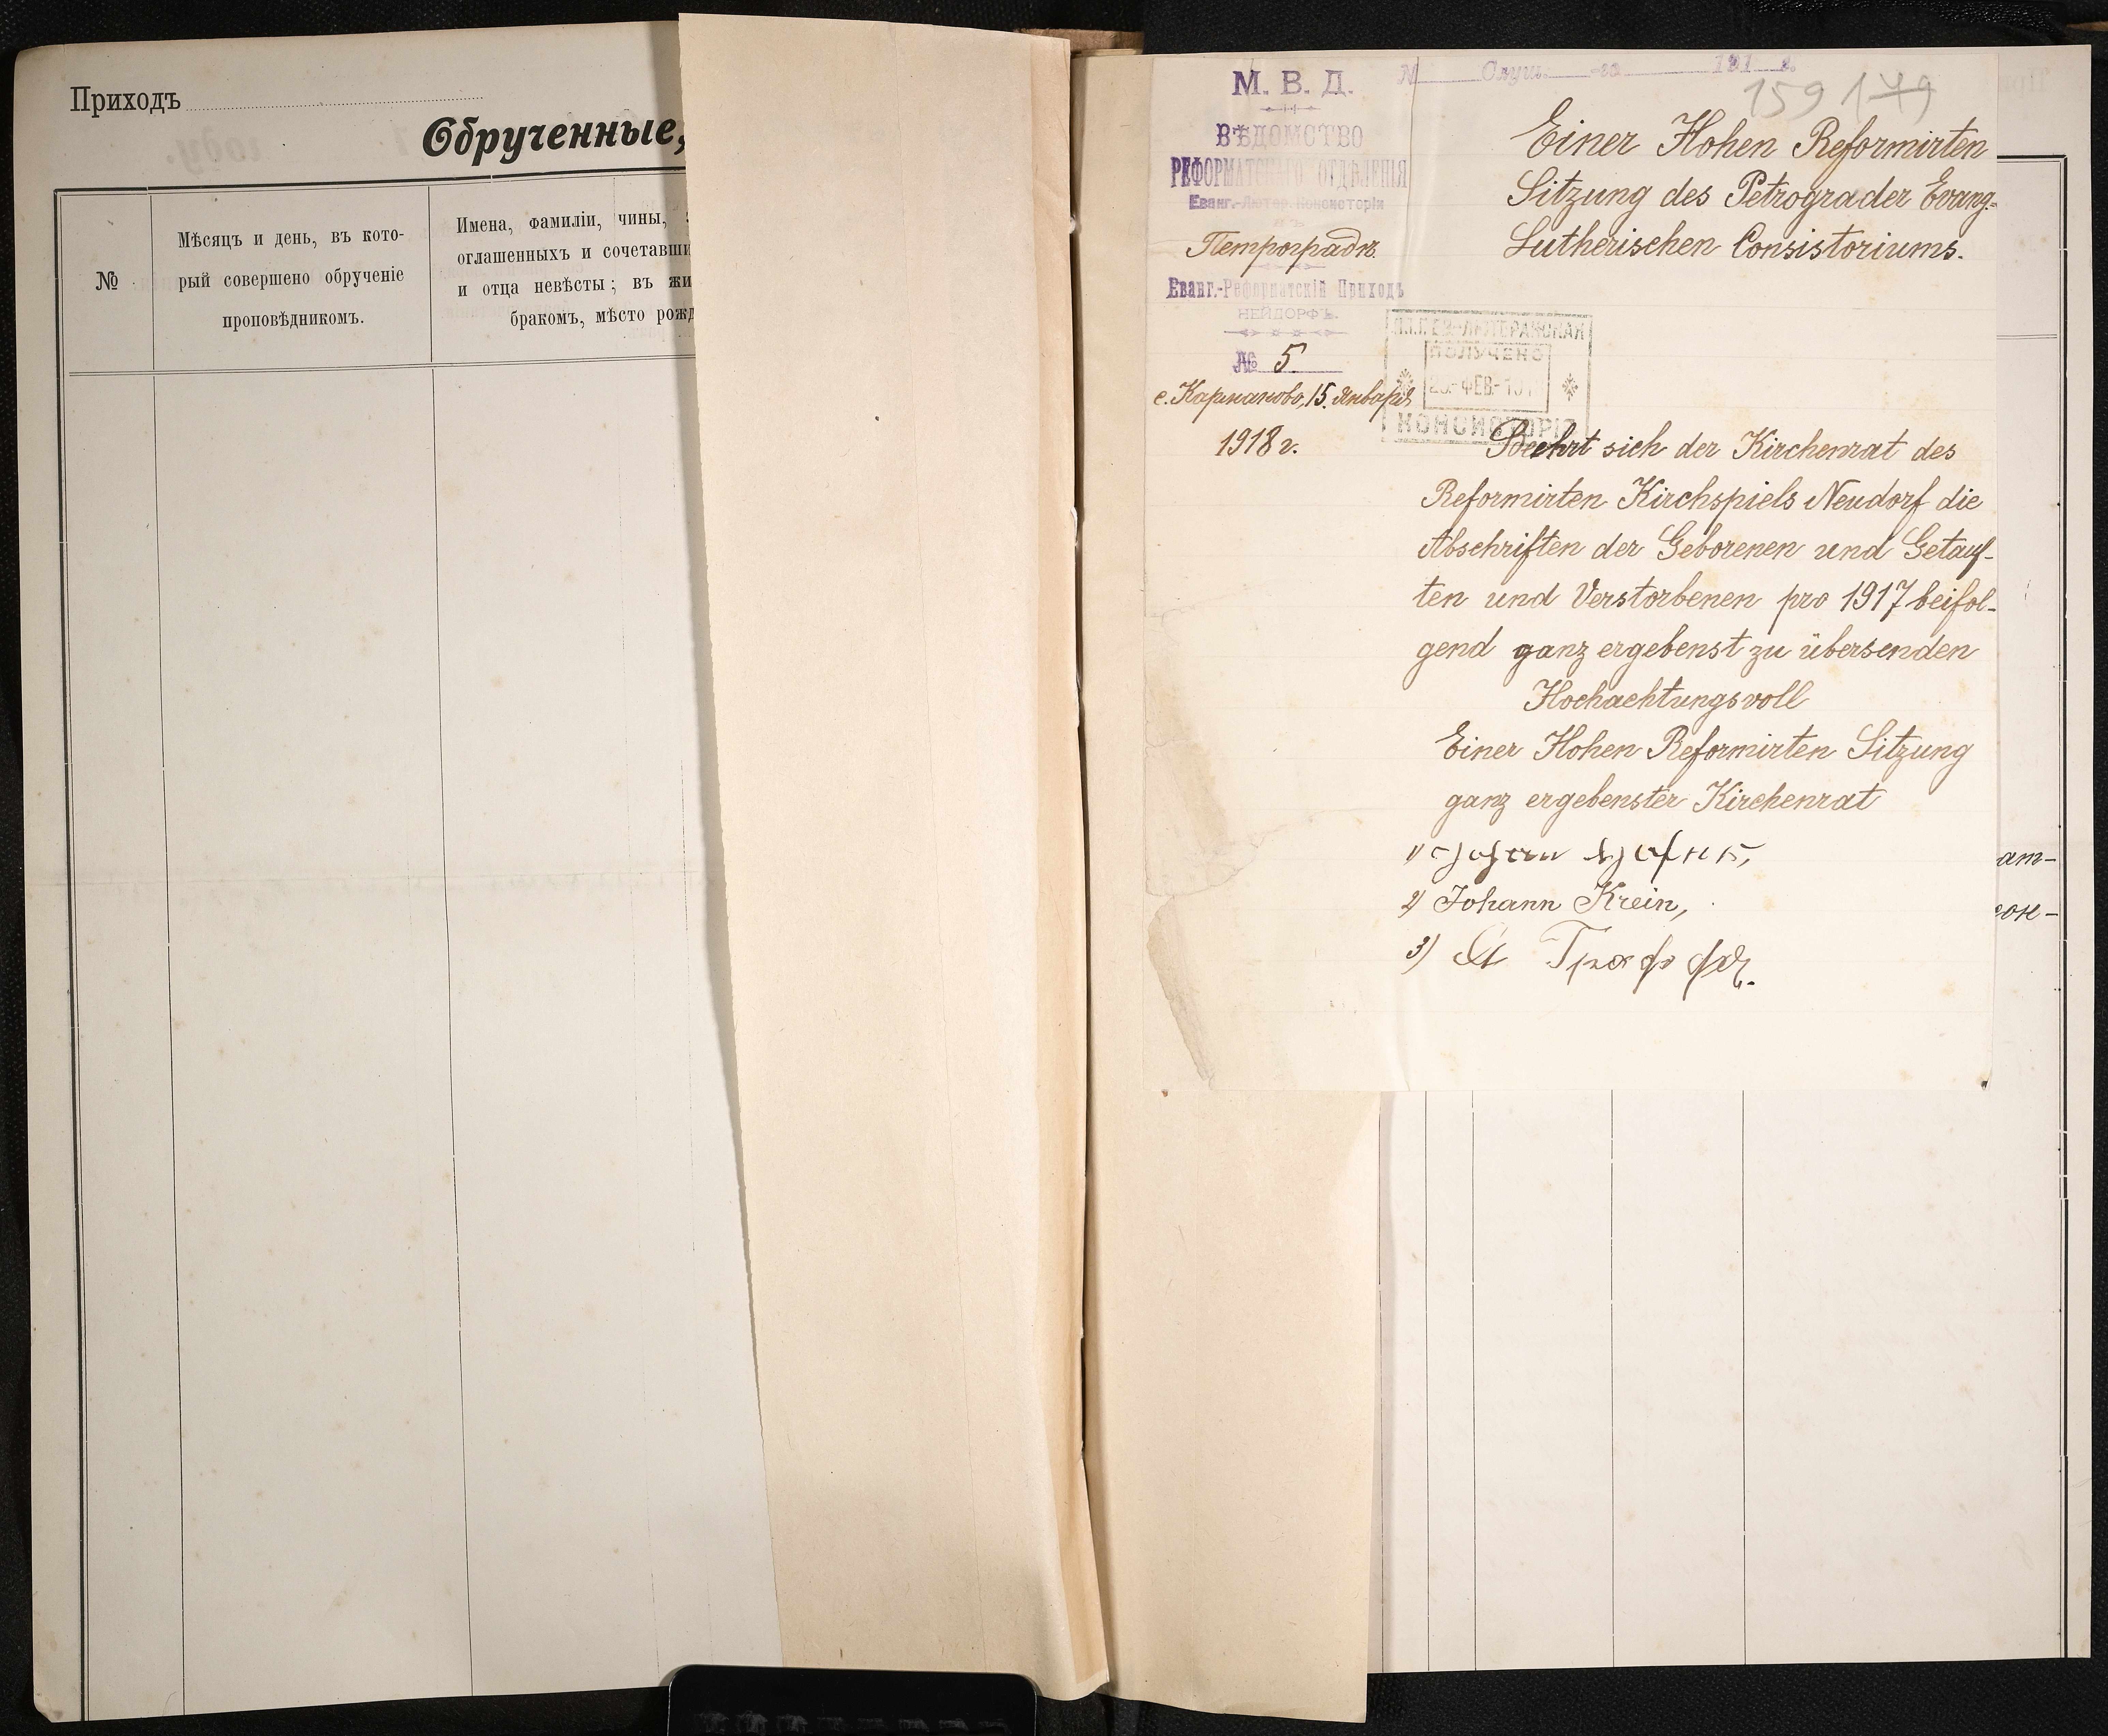 Приходъ
Обрученные,
№
Мѣсяцъ и день, въ кото-
рый совершено обрученіе
проповѣдникомъ.
Имена, фамиліи, чины,
оглашенныхъ и сочетавши
и отца невѣсты; въ жи
бракомъ, мѣсто рожд
М. В. Д.
ВѢДОМСТВО
РЕФОРМАТСКАГО ОТДѢЛЕНІЯ
Еванг.-Лютер. Консисторіи
Петроградъ.
Еванг.-Реформатскій Приходъ
НЕЙДОРФЪ.
№ 5.
с. Карманово, 15. Января
1918 г.
№ Слуш. -го 191 г.
159 179
Einer Hohen Reformirten
Sitzung des Petrograder Evang.-
Lutherischen Consistoriums.
ПОЛУЧЕНО
ФЕВ.
КОНСИСТОРІЯ
Beehrt sich der Kirchenrat des
Reformirten Kirchspiels Neudorf die
Abschriften der Geborenen und Getauf-
ten und Verstorbenen pro 1917 beifol-
gend ganz ergebenst zu übersenden
Hochachtungsvoll
Einer Hohen Reformirten Sitzung
ganz ergebenster Kirchenrat
1) Johann
2) Johann Krein,
3)
ат-